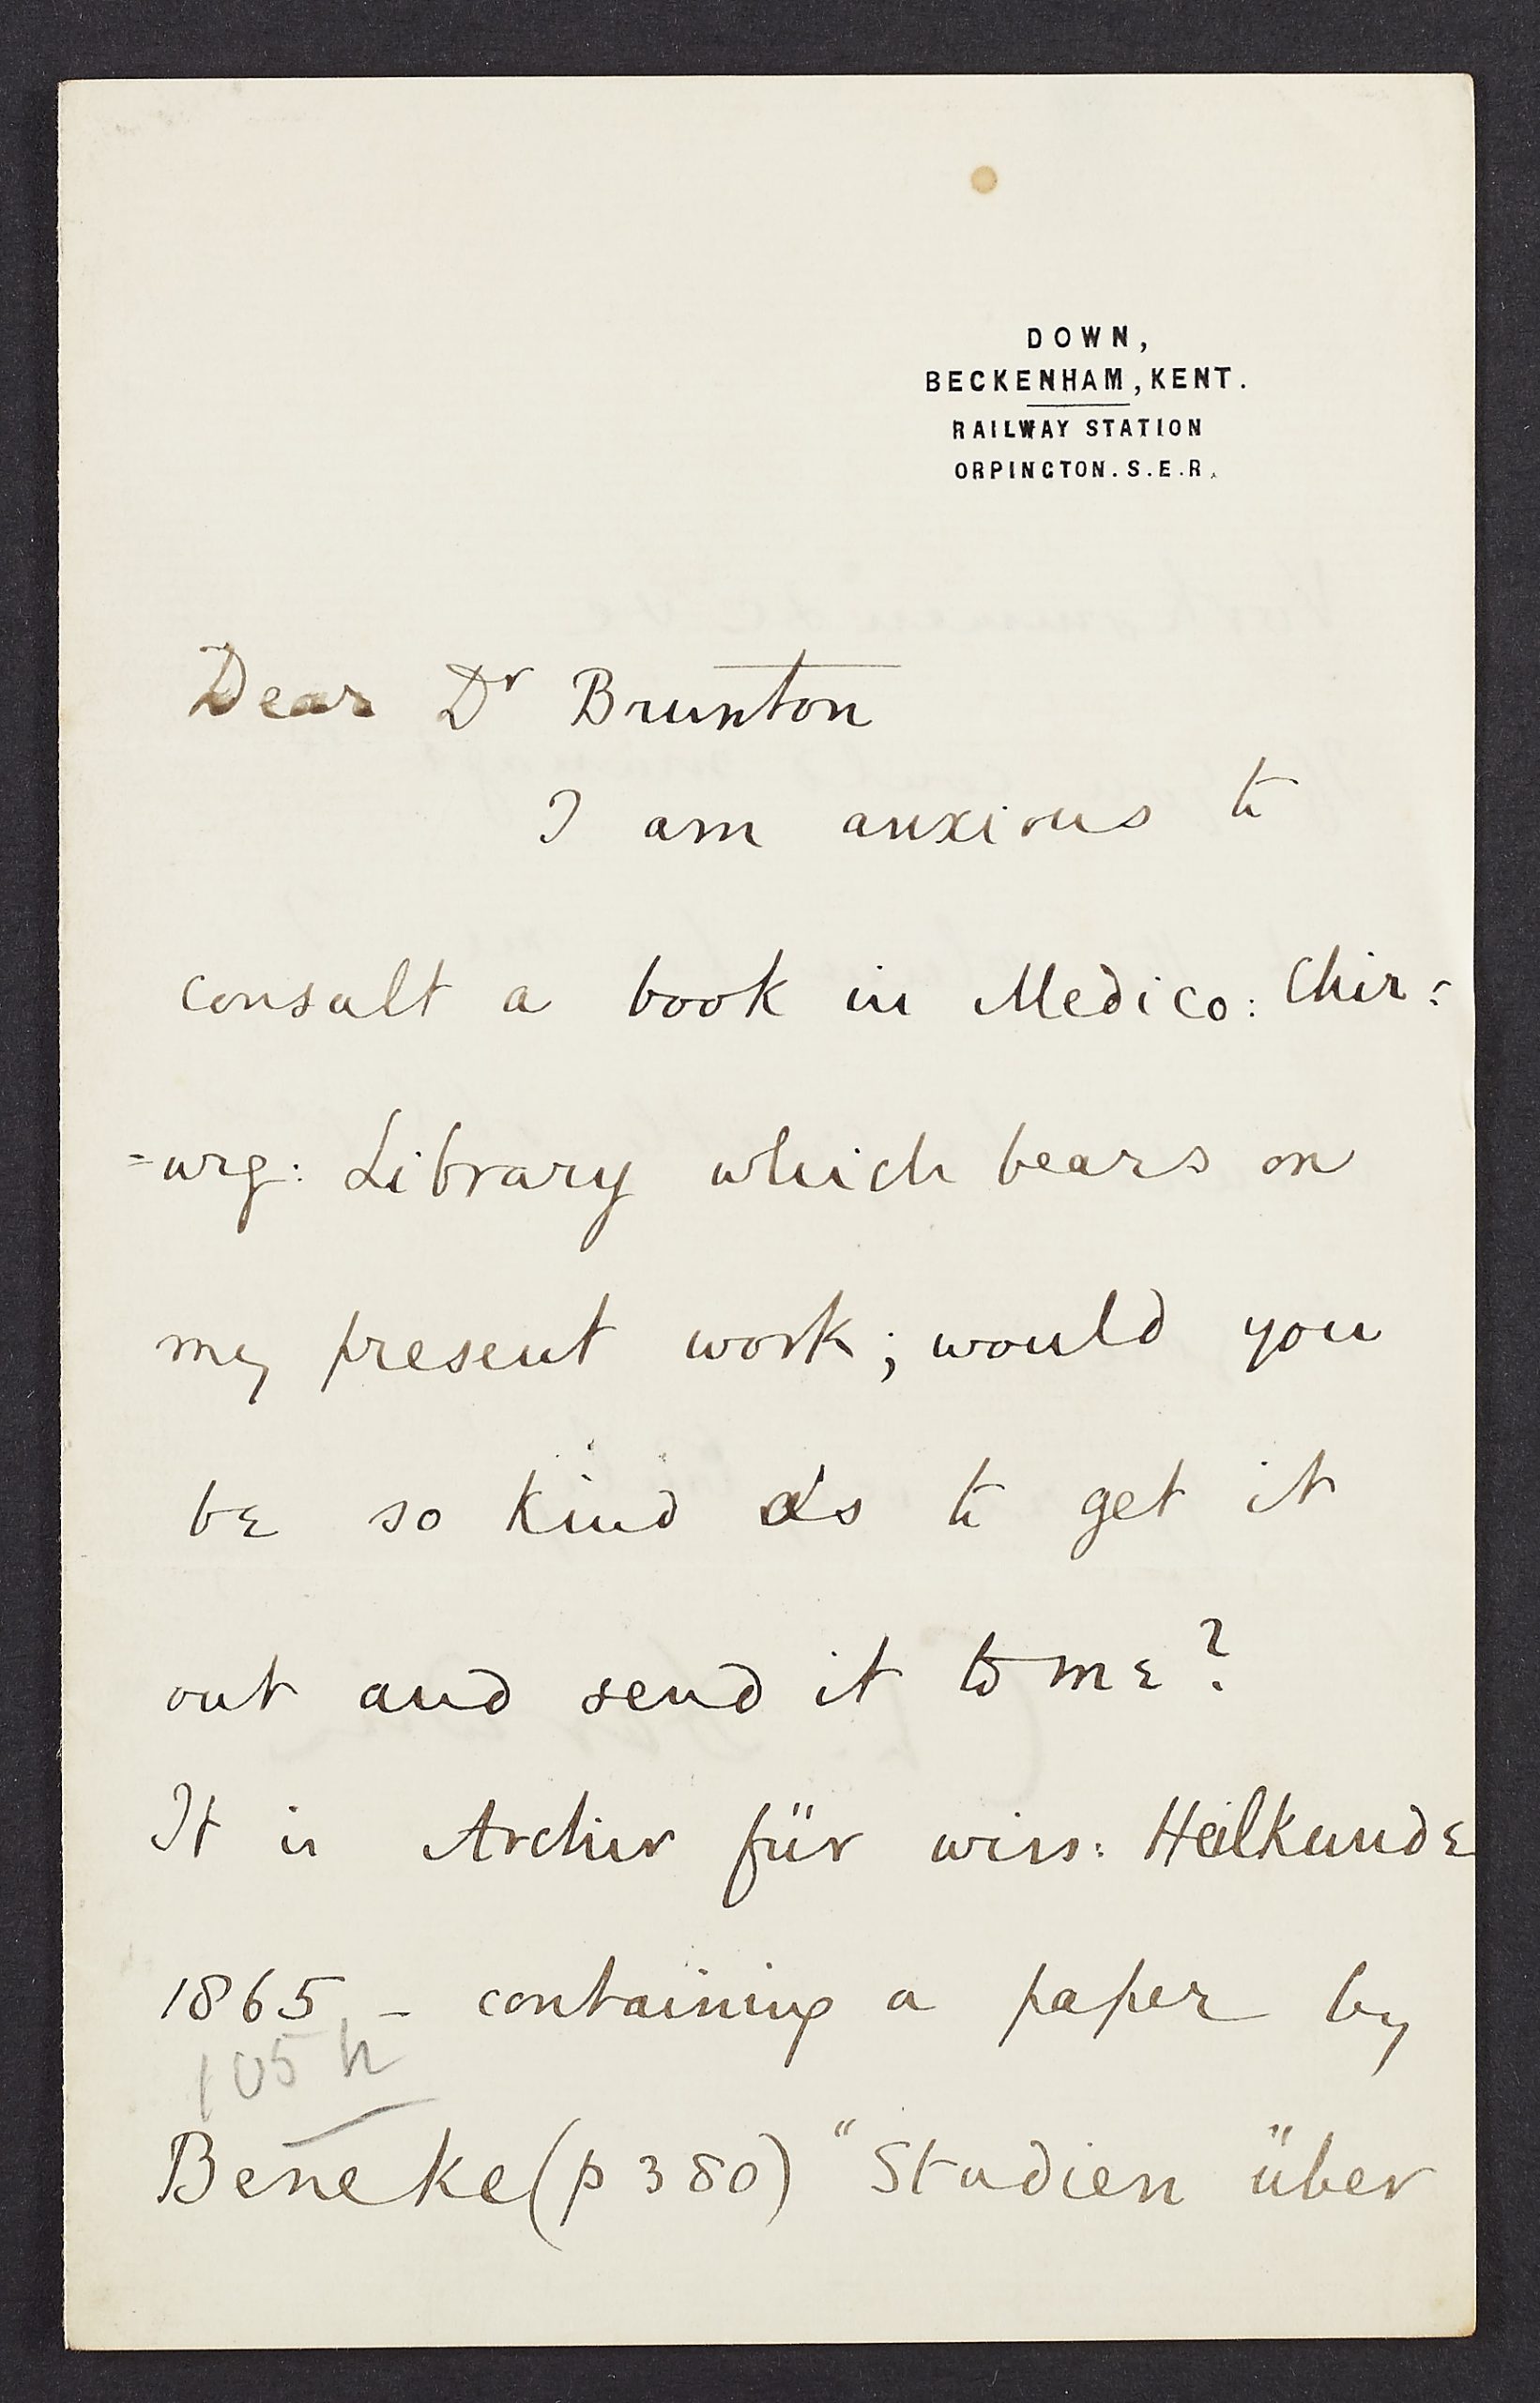 DOWN,
BECKENHAM, KENT.
RAILWAY STATION
ORPINGTON. S.E.R.
Dear Dr Brunton
I am anxious to
consult a book in Medico: Chir=
=urg: Library which bears on
my present work; would you
be so kind as to get it
out and send it to me?
It is Archiv für wiss: Heilkunde
1865 – containing a paper by
105 h
Beneke (p 380) "Studien über